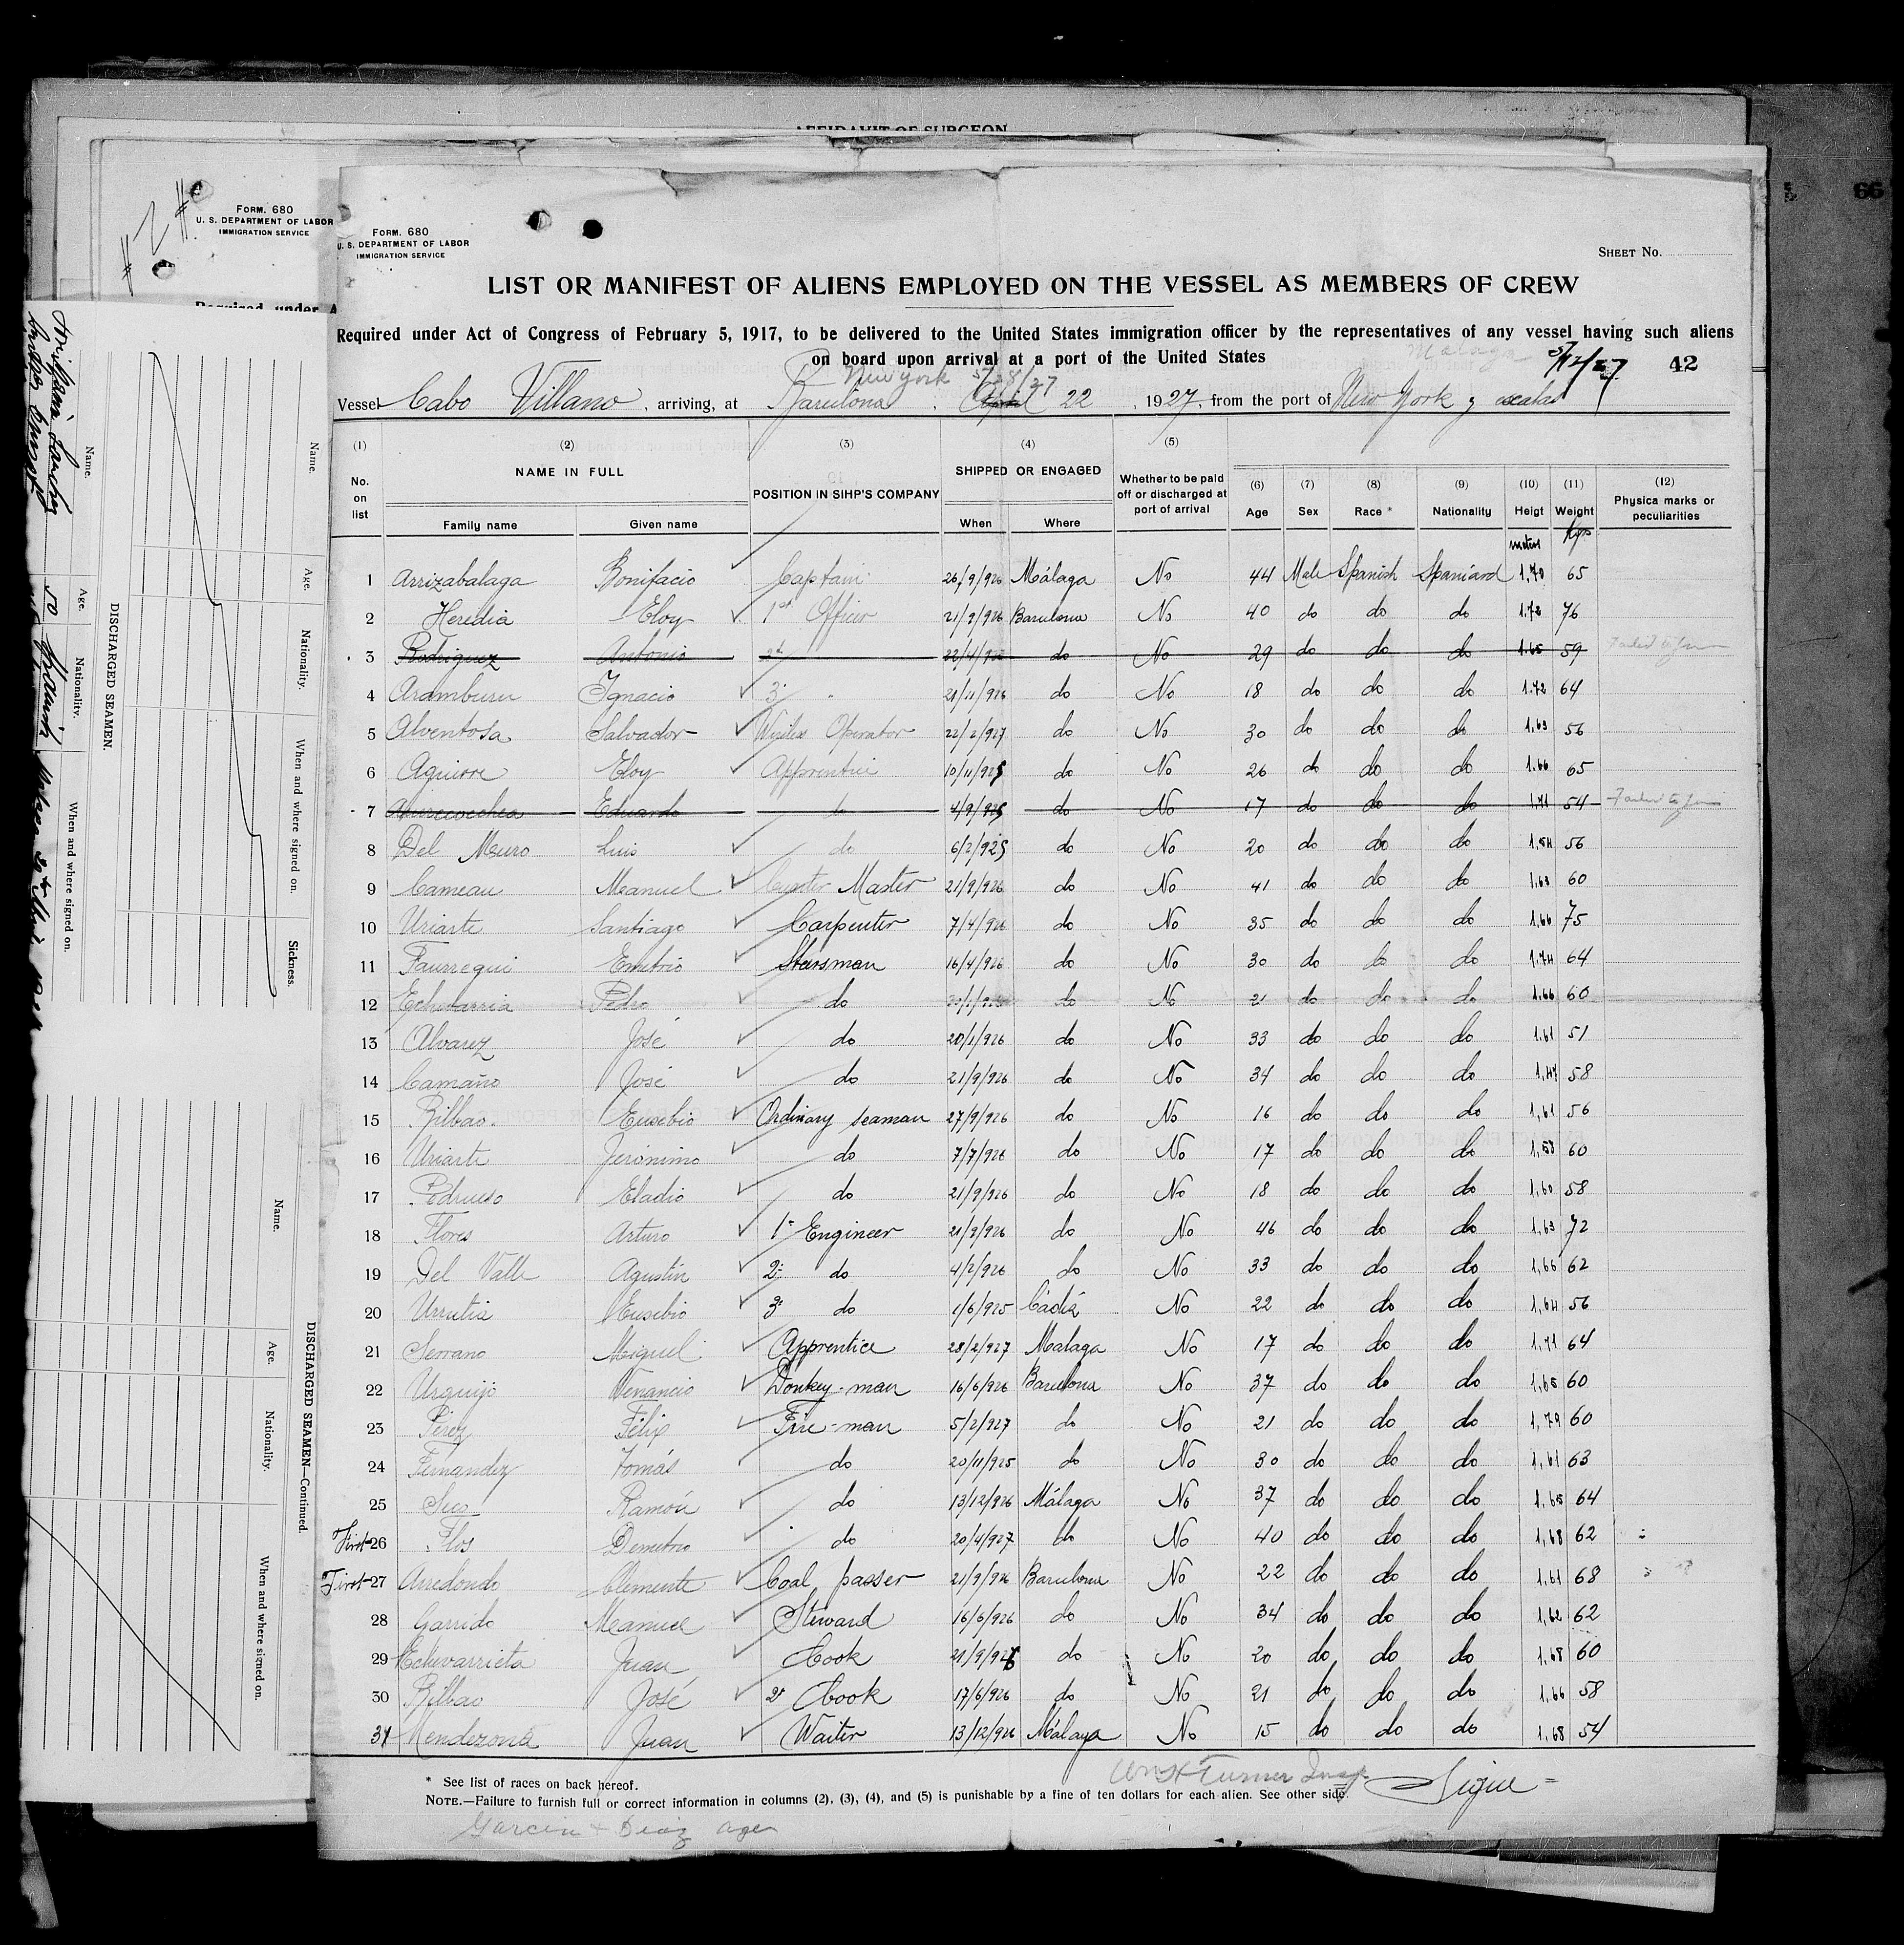 AFFIDAVIT OF SURGEON
66
# 2 #
FORM. 680
U. S. DEPARTMENT OF LABOR
IMMIGRATION SERVICE
Required under A
FORM. 680
U. S. DEPARTMENT OF LABOR
IMMIGRATION SERVICE
SHEET NO.
LIST OR MANIFEST OF ALIENS EMPLOYED ON THE VESSEL AS MEMBERS OF CREW
Required under Act of Congress of February 5, 1917, to be delivered to the United States immigration officer by the representatives of any vessel having such aliens
on board upon arrival at a port of the United States
Malaga 5/12/27 42
New York 5/28/27
Vessel Cabo Villano, arriving, at Barcelona, April 22, 1927, from the port of New York y escalas
(1) (2) (3) (4) (5)
No. on list NAME IN FULL POSITION IN SIHP'S COMPANY SHIPPED OR ENGAGED Whether to be paid off or discharged at port of arrival (6) Age (7) Sex (8) Race * (9) Nationality (10) Heigt (11) Weight (12) Physica marks or peculiarities
Family name Given name When Where
meters Kgs
1 Arrizabalaga Bonifacio Captain 26/9/926 Málaga No 44 Male Spanish Spaniard 1,70 65
2 Heredia Eloy 1st Officer 21/9/926 Barcelona No 40 do do do 1.72 76
3 Rodriguez Antonio 2d 22/4/926 do No 29 do do do 1.65 59 Failed to join
4 Aramburu Ignacio 3d " 21/11/926 do No 18 do do do 1.72 64
5 Alventosa Salvador Wireless Operator 22/2/927 do No 30 do do do 1,63 56
6 Aguirre Eloy Apprentice 10/11/925 do No 26 do do do 1.66 65
7 Eduardo do 4/9/925 do No 17 do do do 1.71 54 Failed to join
8 Del Muro Luis do 6/2/925 do No 20 do do do 1,54 56
9 Cameau Manuel Master 21/9/926 do No 41 do do do 1.63 60
10 Uriarte Santiago Carpenter 7/4/926 do No 35 do do do 1.66 75
11 Faurregui Emeterio Stersman 16/4/926 do No 30 do do do 1.74 64
12 Echevarria Pedro do do No 21 do do do 1.66 60
13 Alvarez José do 20/1/926 do No 33 do do do 1.61 51
14 Camaño José do 21/9/926 do No 34 do do do 1,47 58
15 Bilbao Eusebio Ordinary seaman 27/9/926 do No 16 do do do 1,61 56
16 Uriarte Jeronimo do 7/7/926 do No 17 do do do 1,58 60
17 Pedrueso Eladio do 21/9/926 do No 18 do do do 1,60 58
18 Flores Arturo 1st Engineer 21/9/926 do No 46 do do do 1,63 72
19 Del Valle Agustin 2d do 4/2/926 do No 33 do do do 1,66 62
20 Urrutia Eusebio 3d do 1/6/925 Cádiz No 22 do do do 1,64 56
21 Serrano Miguel Apprentice 28/2/927 Malaga No 17 do do do 1,71 64
22 Urquijo Venancio Donkey-man 16/6/926 Barcelona No 37 do do do 1,65 60
23 Pérez Félix Fire-man 5/2/927 do No 21 do do do 1,79 60
24 Fernandez Tomás do 20/11/925 do No 30 do do do 1,61 63
25 Seco Ramón do 13/12/926 Málaga No 37 do do do 1,65 64
First 26 Flos Demetrio do 20/4/927 do No 40 do do do 1,68 62
First 27 Arredondo Clemente Coal passer 21/9/926 Barcelona No 22 do do do 1,61 68
28 Garrido Manuel Steward 16/6/926 do No 34 do do do 1,62 62
29 Echevarrieta Juan Cook 21/9/926 do No 20 do do do 1,68 60
30 Bilbao José 2d Cook 17/6/926 do No 21 do do do 1,66 58
31 Mendezona Juan Waiter 13/12/926 Málaga No 15 do do do 1,68 54
* See list of races on back hereof.
Wm H Turner Insp. Sigue =
NOTE.—Failure to furnish full or correct information in columns (2), (3), (4), and (5) is punishable by a fine of ten dollars for each alien. See other side.
Garcia & Diaz Agen
DISCHARGED SEAMEN.
Name. Age. Nationality. When and where signed on.
50 Spanish
Name. Age. Nationality. When and where signed on. Sickness.
DISCHARGED SEAMEN—Continued.
Name. Age. Nationality. When and where signed on.